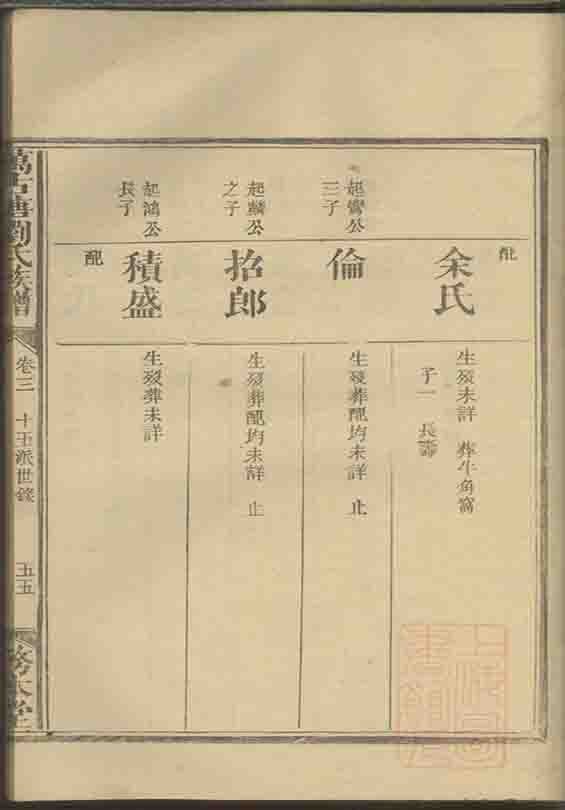 配
余氏
生歿未詳 葬牛角窩
子一 長壽
起鸞公
三子
倫
生歿葬配均未詳 止
起麟公
之子
招郎
生歿葬配均未詳 止
起鴻公
長子
積盛
生歿葬未詳
配
萬古塘劉氏族譜
卷三 十玉派世錄
五五
務本堂